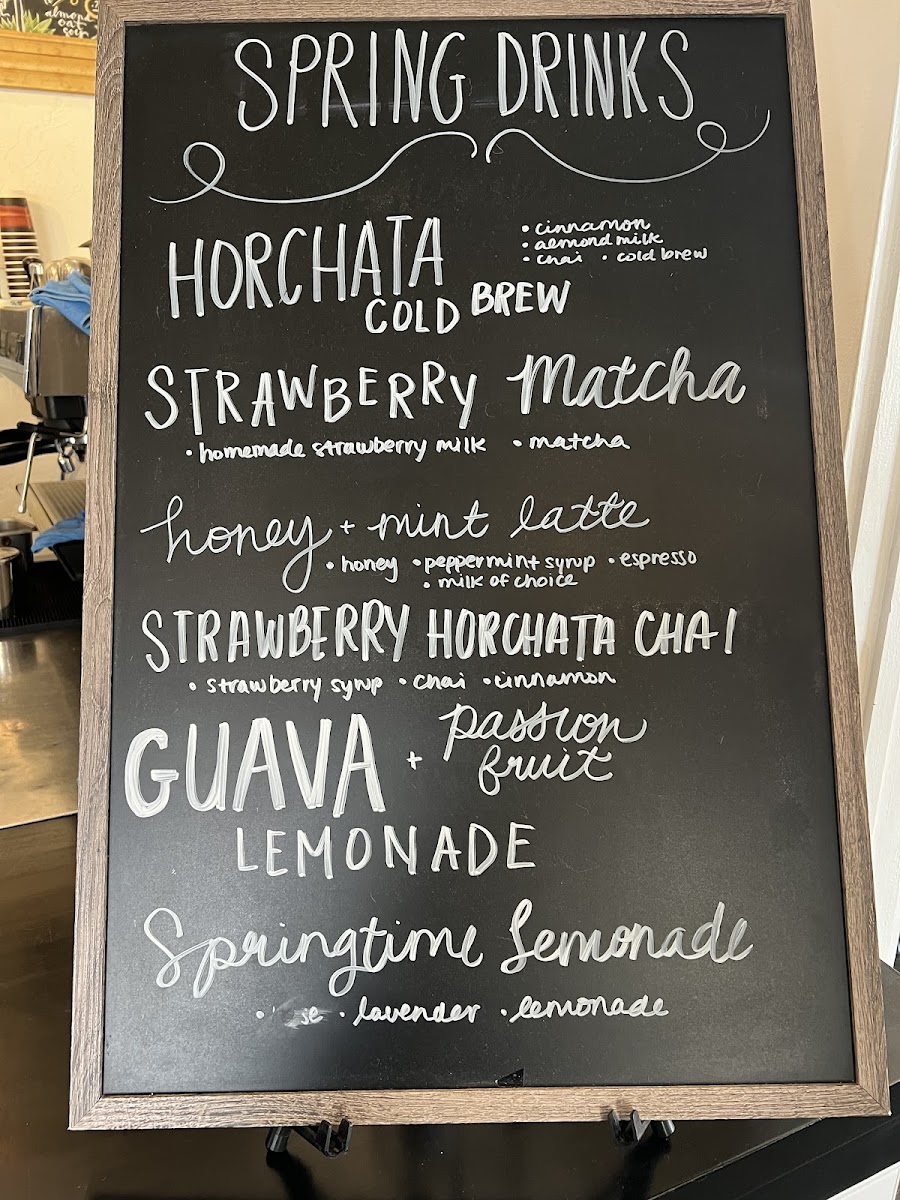 almond
oat
soy
SPRING DRINKS
HORCHATA
COLD BREW
• cinnamon
• almond milk
• chai • cold brew
STRAWBERRY Matcha
• homemade strawberry milk • matcha
honey + mint latte
• honey • peppermint syrup • espresso
• milk of choice
STRAWBERRY HORCHATA CHAI
• strawberry syrup • chai • cinnamon
GUAVA + passion
fruit
LEMONADE
Springtime Lemonade
• lavender • lemonade